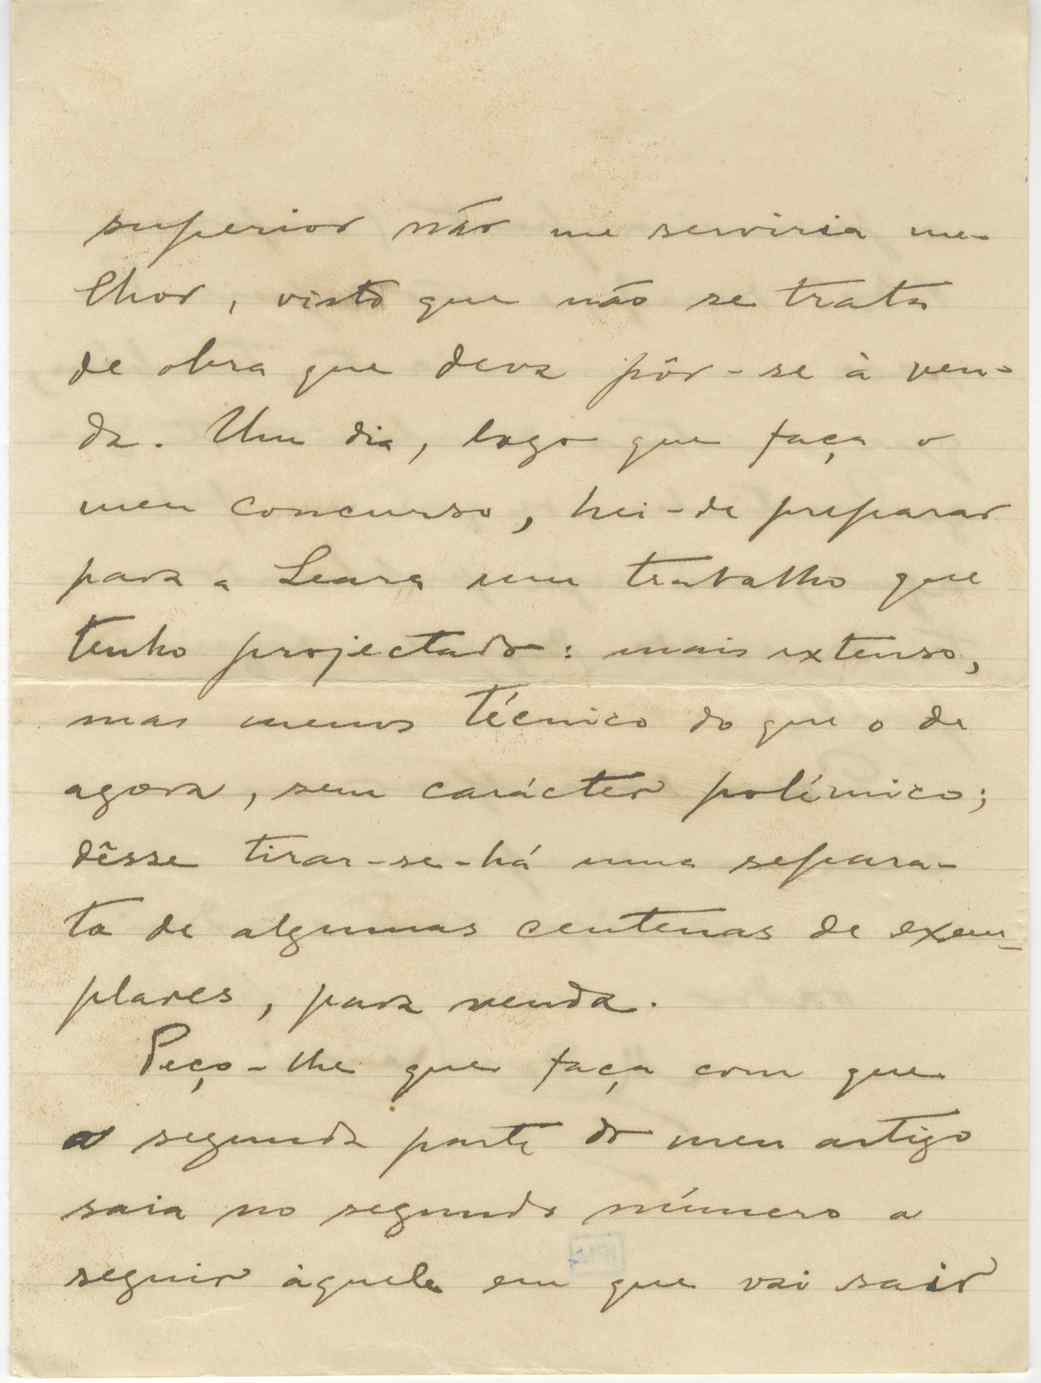 superior não me serviria me-
lhor, visto que não se trata
de obra que deva pôr-se à ven-
da. Um dia, logo que faça o
meu concurso, hei-de preparar
para a Seara um trabalho que
tenho projectado: mais extenso,
mas menos técnico do que o de
agora, sem carácter polémico;
dêsse tirar-se-há uma separa-
ta de algumas centenas de exem-
plares, para venda.
Peço-lhe que faça com que
a segunda parte do meu artigo
saia no segundo número a
seguir àquele em que vai sair